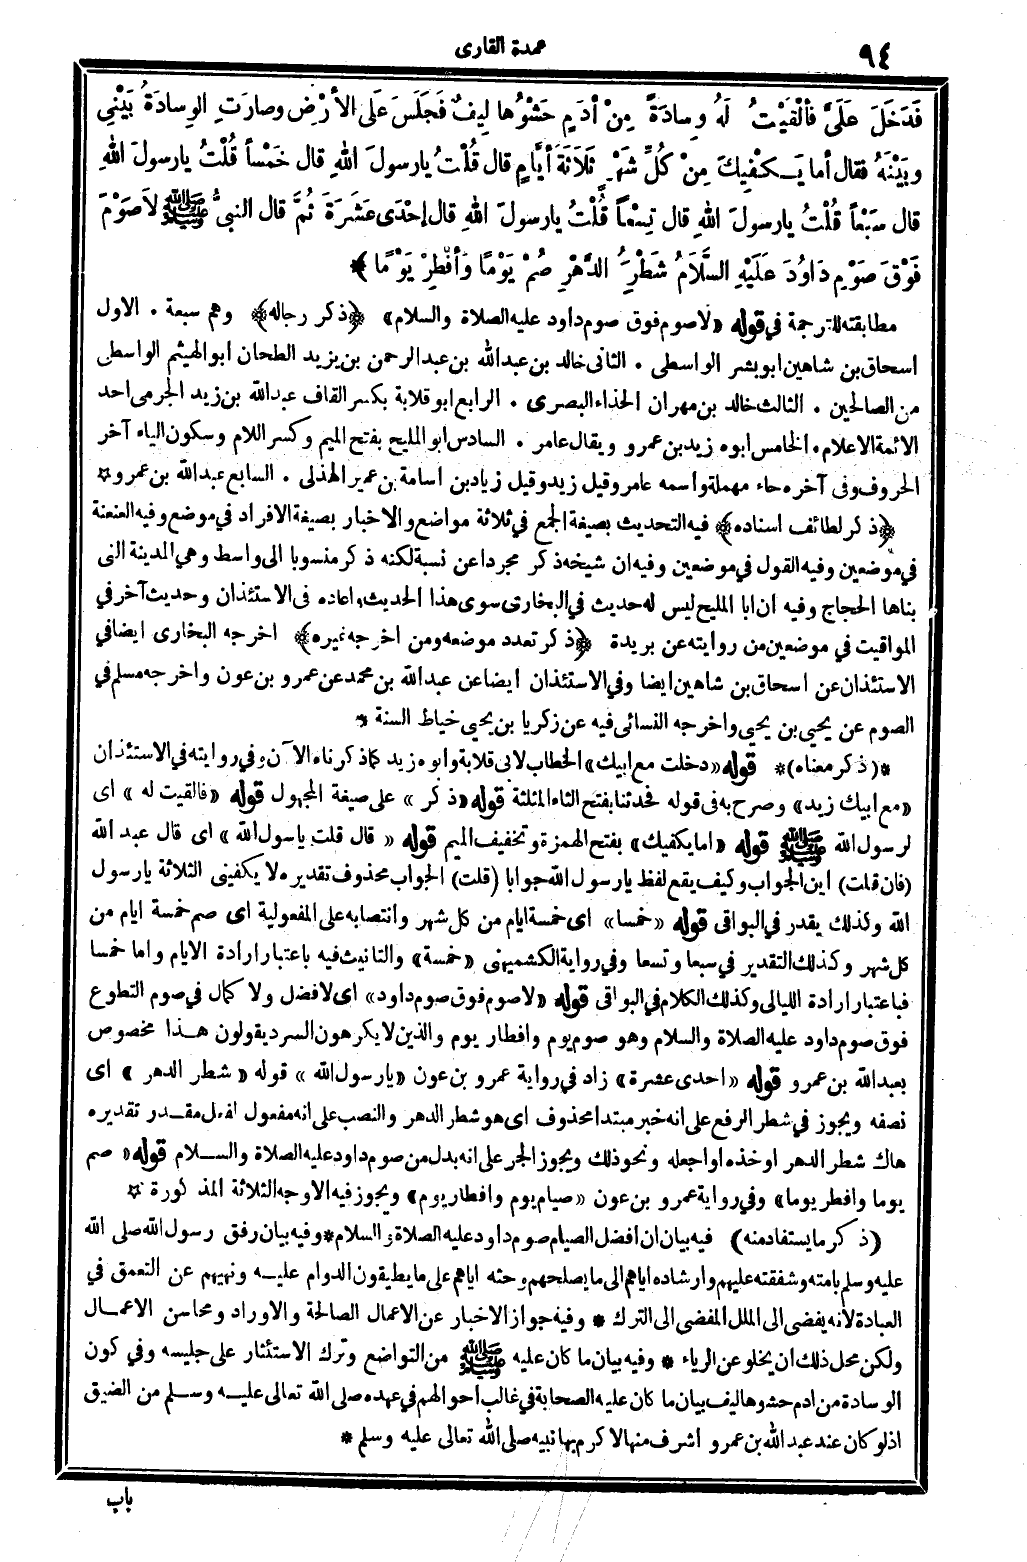 ٩٤
عمدة القارى
فَدَخَلَ عَلَىَّ فَأَلْقَيْتُ لَهُ وِسادَةً مِنْ أَدَمٍ حَشْوُها لِيفٌ فَجَلَسَ عَلَى الأَرْضِ وصارَتِ الوِسادَةُ بَيْنِي
وبَيْنَهُ فقال أما يَكْفِيكَ مِنْ كُلِّ شَهْرٍ ثَلَاثَةَ أَيَّامٍ قال قُلْتُ يارسولَ اللهِ قال خَمْساً قُلْتُ يارسولَ اللهِ
قال سَبْعاً قُلْتُ يارسولَ اللهِ قال تِسْعاً قُلْتُ يارسولَ اللهِ قال إحْدَى عَشَرَةَ ثُمَّ قال النبيُّ ﷺ لاَ صَوْمَ
فَوْقَ صَوْمِ دَاوُدَ عَلَيْهِ السَّلَامُ شَطْرَُ الدَّهْرِ صُمْ يَوْمًا وَأَفْطِرْ يَوْمًا ﴾ *
مطابقته للترجمة في قوله «لاصوم فوق صوم داود عليه الصلاة والسلام» ﴿ذكر رجاله﴾ وهم سبعة . الاول
اسحاق بن شاهين ابو بشر الواسطى . الثانى خالد بن عبدالله بن عبدالرحمن بن يزيد الطحان ابو الهيثم الواسطى
من الصالحين . الثالث خالد بن مهران الحذاء البصرى . الرابع ابو قلابة بكسر القاف عبدالله بن زيد الجرمى احد
الائمة الاعلام . الخامس ابوه زيد بن عمرو ويقال عامر . السادس ابو المليح بفتح الميم وكسر اللام وسكون الياء آخر
الحروف وفى آخره حاء مهملة واسمه عامر وقيل زيد وقيل زياد بن اسامة بن عمير الهذلى . السابع عبدالله بن عمرو ☆
﴿ذكر لطائف اسناده﴾ فيه التحديث بصيغة الجمع في ثلاثة مواضع والاخبار بصيغة الافراد في موضع وفيه العنعنة
في موضعين وفيه القول في موضعين وفيه ان شيخه ذكر مجردا عن نسبة لكنه ذكر منسوبا الى واسط وهي المدينة التى
بناها الحجاج وفيه ان ابا المليح ليس له حديث في البخارى سوى هذا الحديث واعاده فى الاستئذان وحديث آخر في
المواقيت في موضعين من روايته عن بريدة ﴿ذكر تعدد موضعه ومن اخرجه غيره﴾ اخرجه البخارى ايضا في
الاستئذان عن اسحاق بن شاهين ايضا وفي الاستئذان ايضا عن عبدالله بن محمد عن عمرو بن عون واخرجه مسلم في
الصوم عن يحيى بن يحيى واخرجه النسائى فيه عن زكريا بن يحيى خياط السنة *
*(ذكر معناه)* قوله «دخلت مع ابيك» الخطاب لابى قلابة وابوه زيد كما ذكرناه الآن وفي روايته في الاستئذان
«مع ابيك زيد» وصرح به فى قوله فحدثنا بفتح الثاء المثلثة قوله «ذكر» على صيغة المجهول قوله «فالقيت له» اى
لرسول الله ﷺ قوله «اما يكفيك» بفتح الهمزة وتخفيف الميم قوله « قال قلت يارسول الله» اى قال عبد الله
(فان قلت) اين الجواب وكيف يقع لفظ يارسول الله جوابا (قلت) الجواب محذوف تقديره لا يكفينى الثلاثة يارسول
الله وكذلك يقدر في البواقى قوله «خمسا» اى خمسة ايام من كل شهر وانتصابه على المفعولية اى صم خمسة ايام من
كل شهر وكذلك التقدير في سبعا وتسعا وفي رواية الكشميهنى «خمسة» والتانيث فيه باعتبار ارادة الايام واما خمسا
فباعتبار ارادة الليالى وكذلك الكلام في البواقى قوله «لاصوم فوق صوم داود» اى لا فضل ولا كمال في صوم التطوع
فوق صوم داود عليه الصلاة والسلام وهو صوم يوم وافطار يوم والذين لا يكرهون السرد يقولون هذا مخصوص
بعبدالله بن عمرو قوله «احدى عشرة» زاد في رواية عمرو بن عون «يارسول الله» قوله «شطر الدهر» اى
نصفه ويجوز في شطر الرفع على انه خبر مبتدا محذوف اى هو شطر الدهر والنصب على انه مفعول لفعل مقدر تقديره
هاك شطر الدهر او خذه او اجعله ونحو ذلك ويجوز الجر على انه بدل من صوم داود عليه الصلاة والسلام قوله «صم
يوما وافطر يوما» وفي رواية عمرو بن عون «صيام يوم وافطار يوم» ويجوز فيه الاوجه الثلاثة المذكورة ☆
(ذكر ما يستفاد منه) فيه بيان ان افضل الصيام صوم داود عليه الصلاة والسلام * وفيه بيان رفق رسول الله صلى الله
عليه وسلم بامته وشفقته عليهم وارشاده اياهم الى ما يصلحهم وحثه اياهم على ما يطيقون الدوام عليه ونهيهم عن التعمق في
العبادة لانه يفضى الى الملل المفضى الى الترك * وفيه جواز الاخبار عن الاعمال الصالحة والاوراد ومحاسن الاعمال
ولكن محل ذلك ان يخلو عن الرياء * وفيه بيان ما كان عليه ﷺ من التواضع وترك الاستئثار على جليسه وفي كون
الوسادة من ادم حشوها ليف بيان ما كان عليه الصحابة في غالب احوالهم في عهده صلى الله تعالى عليه وسلم من الضيق
اذ لو كان عند عبدالله بن عمرو اشرف منها لاكرم بها نبيه صلى الله تعالى عليه وسلم *
باب